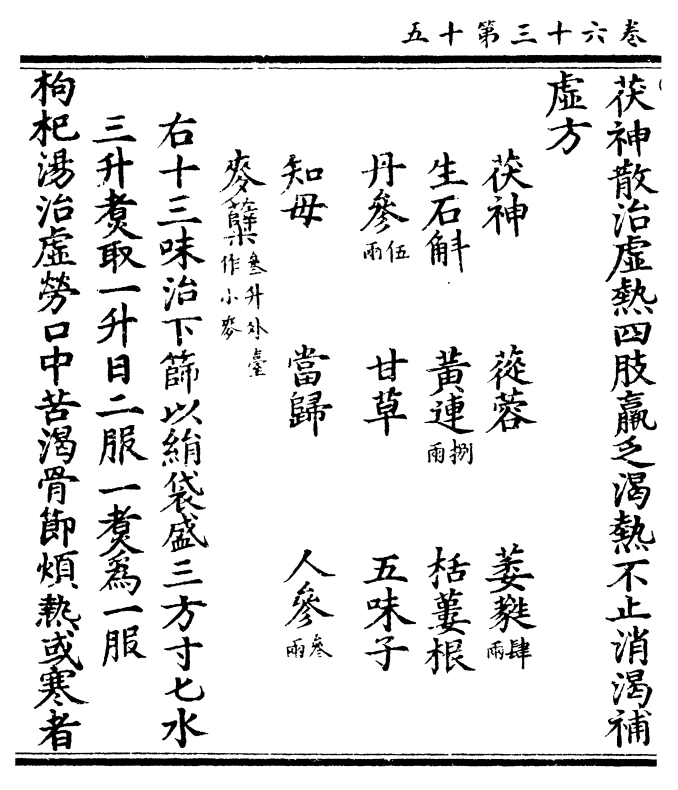 卷六十三第十五
茯神散治虛熱四肢羸乏渴熱不止消渴補
虛方
茯神　蓯蓉　萎蕤肆兩
生石斛　黃連捌兩　栝蔞根
丹參伍兩　甘草　五味子
知母　當歸　人參叁兩
麥蘖叁升外臺作小麥
右十三味治下篩以絹袋盛三方寸匕水
三升煑取一升日二服一煑爲一服
枸杞湯治虛勞口中苦渴骨節煩熱或寒者